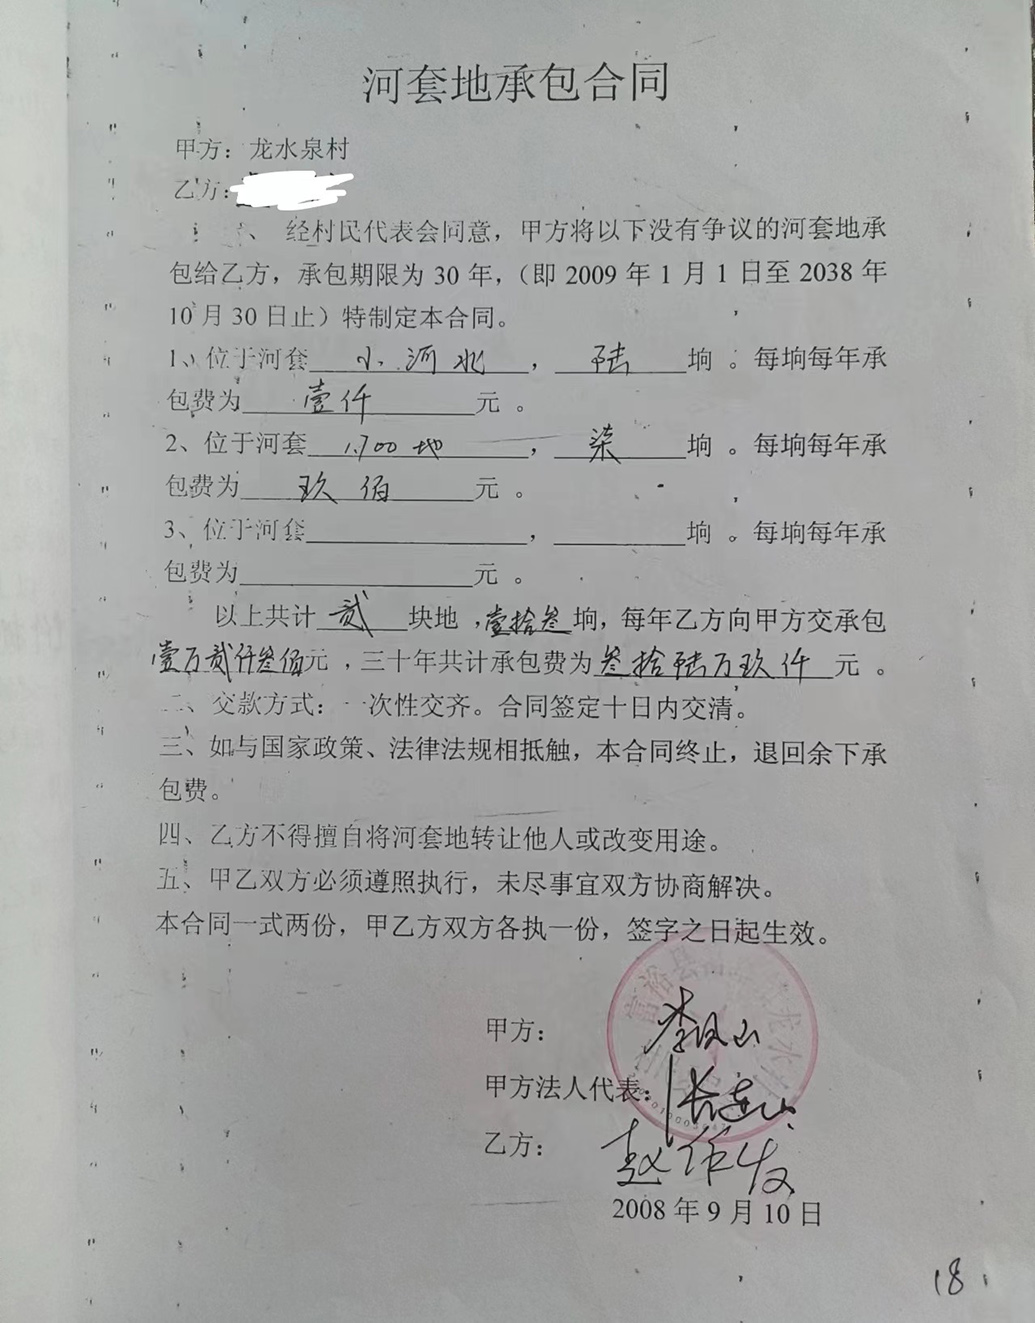 河套地承包合同
甲方：龙水泉村
乙方：
、经村民代表会同意，甲方将以下没有争议的河套地承
包给乙方，承包期限为 30 年，（即 2009 年 1 月 1 日至 2038 年
10 月 30 日止）特制定本合同。
1、位于河套 小河北 ， 陆 垧 。每垧每年承
包费为 壹仟 元 。
2、位于河套 1.700地 ， 柒 垧 。每垧每年承
包费为 玖佰 元 。
3、位于河套 ， 垧 。每垧每年承
包费为 元 。
以上共计 贰 块地 ，壹拾叁垧，每年乙方向甲方交承包
壹万贰仟叁佰元 ，三十年共计承包费为 叁拾陆万玖仟 元 。
二、交款方式：一次性交齐。合同签定十日内交清。
三、如与国家政策、法律法规相抵触，本合同终止，退回余下承
包费。
四、乙方不得擅自将河套地转让他人或改变用途。
五、甲乙双方必须遵照执行，未尽事宜双方协商解决。
本合同一式两份，甲乙方双方各执一份，签字之日起生效。
富裕县
甲方： 李凤山
甲方法人代表： 张连山
乙方： 赵作发
2008 年 9 月 10 日
18